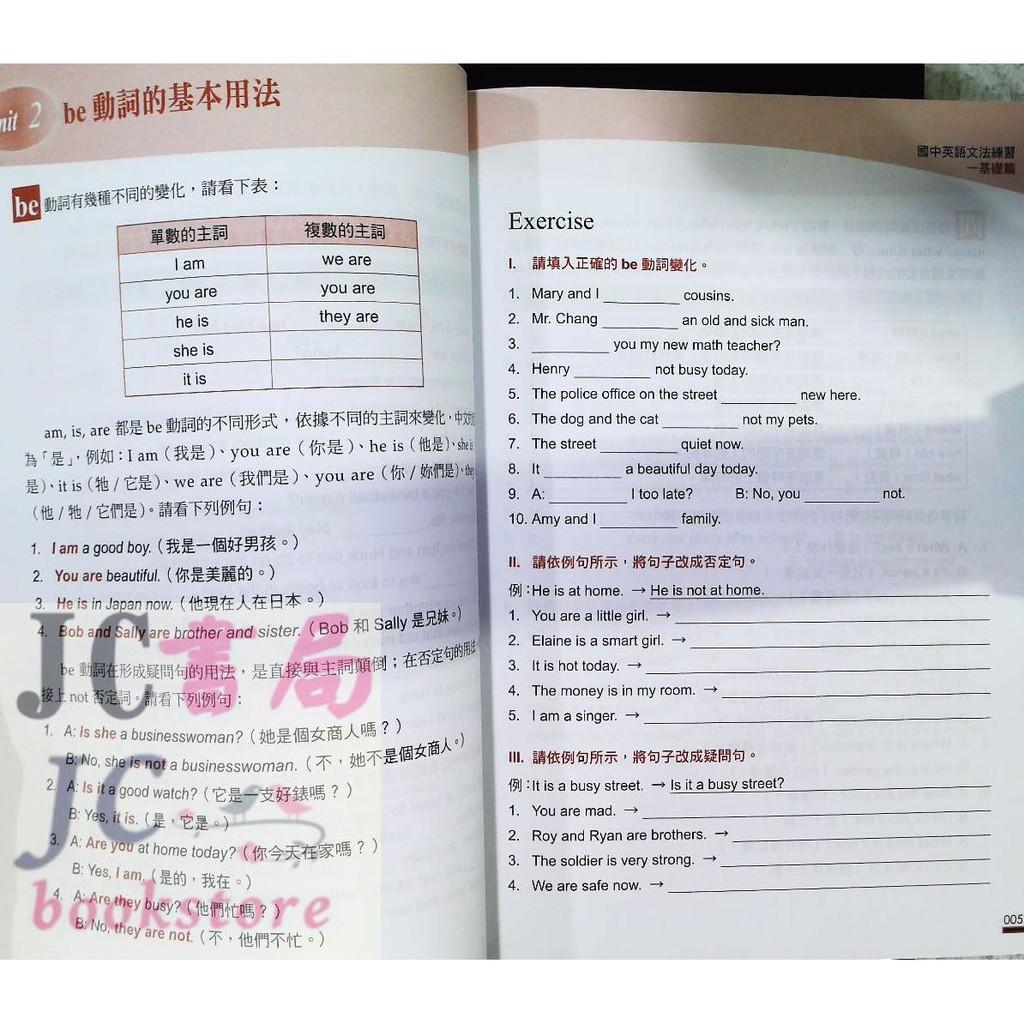 Unit 2 be 動詞的基本用法
be 動詞有幾種不同的變化，請看下表：
單數的主詞 複數的主詞
I am we are
you are you are
he is they are
she is
it is
am, is, are 都是 be 動詞的不同形式，依據不同的主詞來變化，中文
為「是」，例如：I am（我是）、you are（你是）、he is（他是）、she is
是）、it is（牠 / 它是）、we are（我們是）、you are（你 / 妳們是）、they
（他 / 牠 / 它們是）。請看下列例句：
1. I am a good boy.（我是一個好男孩。）
2. You are beautiful.（你是美麗的。）
3. He is in Japan now.（他現在人在日本。）
4. Bob and Sally are brother and sister.（Bob 和 Sally 是兄妹。）
be 動詞在形成疑問句的用法，是直接與主詞顛倒；在否定句的用法，
接上 not 否定詞。請看下列例句：
1. A: Is she a businesswoman?（她是個女商人嗎？）
B: No, she is not a businesswoman.（不，她不是個女商人。）
2. A: Is it a good watch?（它是一支好錶嗎？）
B: Yes, it is.（是，它是。）
3. A: Are you at home today?（你今天在家嗎？）
B: Yes, I am.（是的，我在。）
4. A: Are they busy?（他們忙嗎？）
B: No, they are not.（不，他們不忙。）
JC書局
JC
bookstore
國中英語文法練習
—基礎篇
Exercise
I. 請填入正確的 be 動詞變化。
1. Mary and I __________ cousins.
2. Mr. Chang __________ an old and sick man.
3. __________ you my new math teacher?
4. Henry __________ not busy today.
5. The police office on the street __________ new here.
6. The dog and the cat __________ not my pets.
7. The street __________ quiet now.
8. It __________ a beautiful day today.
9. A: __________ I too late? B: No, you __________ not.
10. Amy and I __________ family.
II. 請依例句所示，將句子改成否定句。
例：He is at home. → He is not at home.
1. You are a little girl. →
2. Elaine is a smart girl. →
3. It is hot today. →
4. The money is in my room. →
5. I am a singer. →
III. 請依例句所示，將句子改成疑問句。
例：It is a busy street. → Is it a busy street?
1. You are mad. →
2. Roy and Ryan are brothers. →
3. The soldier is very strong. →
4. We are safe now. →
005